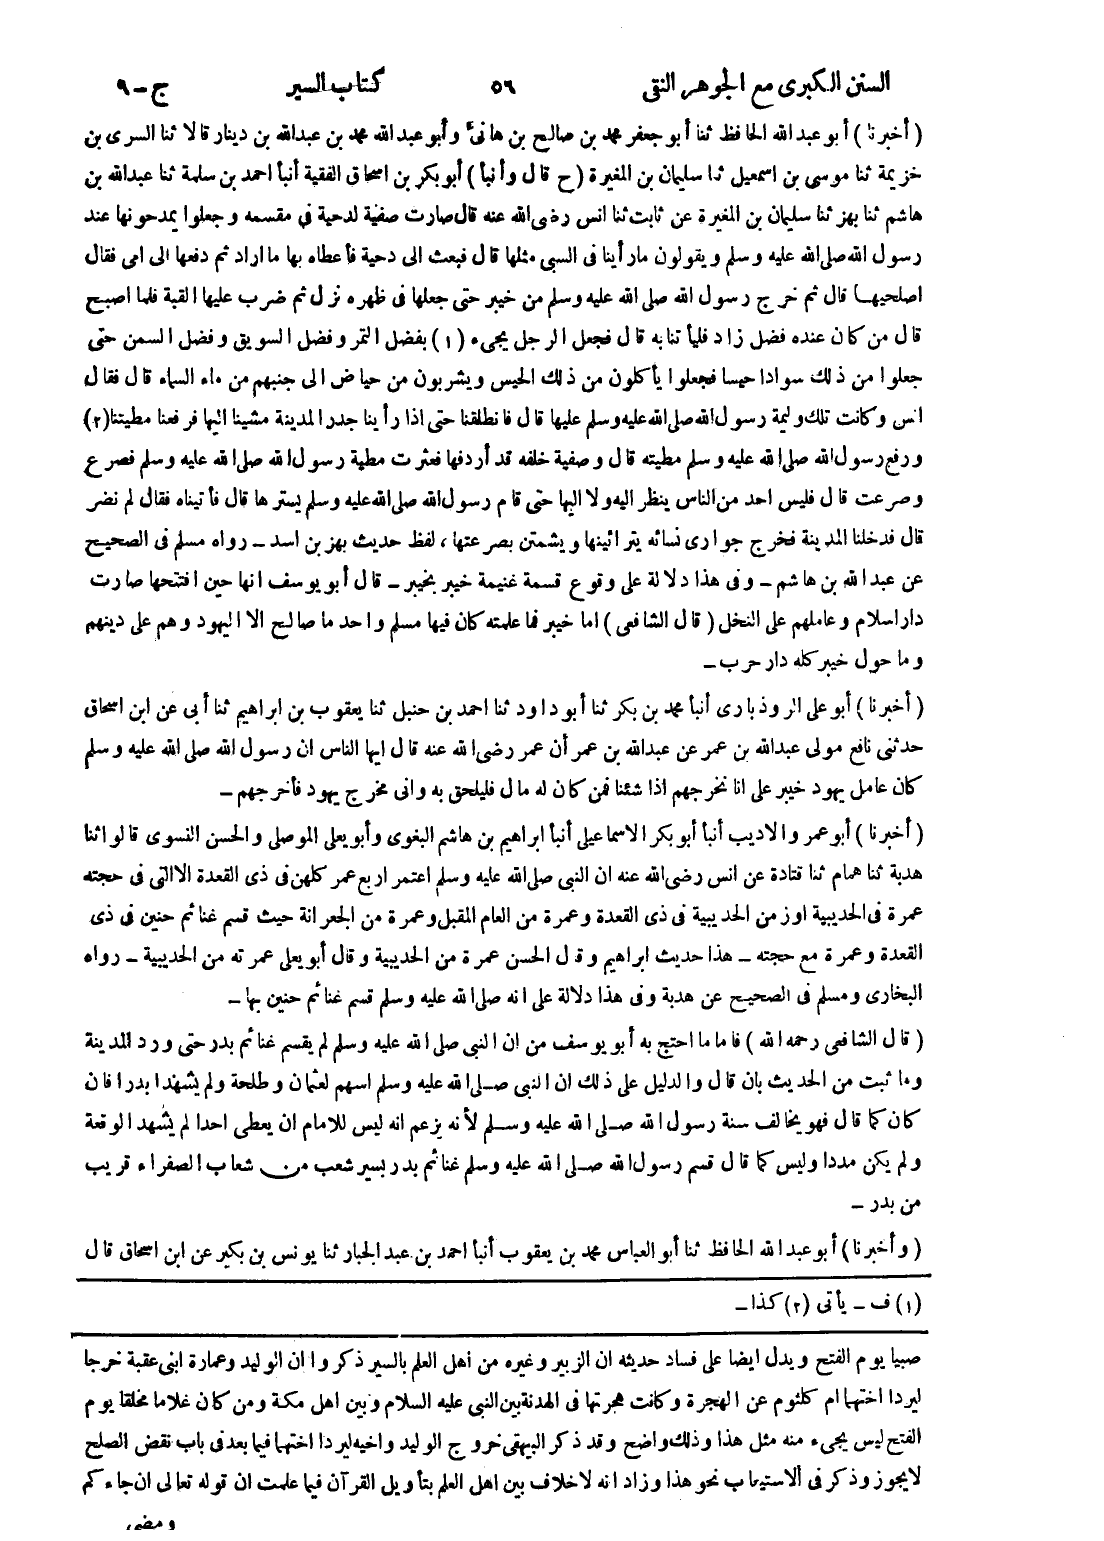 السنن الكبرى مع الجوهر النقى ٥٦ كتاب السير ج-٩
( أخبرنا ) أبو عبد الله الحافظ ثنا أبو جعفر محمد بن صالح بن هانئ وأبو عبد الله محمد بن عبدالله بن دينار قالا ثنا السرى بن
خزيمة ثنا موسى بن اسمعيل ثنا سليمان بن المغيرة ( ح قال وأنبأ ) أبو بكر بن اسحاق الفقيه أنبأ احمد بن سلمة ثنا عبدالله بن
هاشم ثنا بهز ثنا سليمان بن المغيرة عن ثابت ثنا انس رضى الله عنه قال صارت صفية لدحية فى مقسمه وجعلوا يمدحونها عند
رسول الله صلى الله عليه وسلم ويقولون ما رأينا فى السبى مثلها قال فبعث الى دحية فأعطاه بها ما اراد ثم دفعها الى امى فقال
اصلحيها قال ثم خرج رسول الله صلى الله عليه وسلم من خيبر حتى جعلها فى ظهره نزل ثم ضرب عليها القبة فلما اصبح
قال من كان عنده فضل زاد فليأتنا به قال فجعل الرجل يجىء (١) بفضل التمر وفضل السويق وفضل السمن حتى
جعلوا من ذلك سوادا حيسا فجعلوا يأكلون من ذلك الحيس ويشربون من حياض الى جنبهم من ماء السماء قال فقال
انس وكانت تلك وليمة رسول الله صلى الله عليه وسلم عليها قال فانطلقنا حتى اذا رأينا جدر المدينة مشينا اليها فرفعنا مطيتنا(٢)
ورفع رسول الله صلى الله عليه وسلم مطيته قال وصفية خلفه قد أردفها فعثرت مطية رسول الله صلى الله عليه وسلم فصرع
وصرعت قال فليس احد من الناس ينظر اليه ولا اليها حتى قام رسول الله صلى الله عليه وسلم يسترها قال فأتيناه فقال لم نضر
قال فدخلنا المدينة فخرج جوارى نسائه يترائينها ويشمتن بصرعتها ، لفظ حديث بهز بن اسد – رواه مسلم فى الصحيح
عن عبد الله بن هاشم – وفى هذا دلالة على وقوع قسمة غنيمة خيبر بخيبر – قال أبو يوسف انها حين افتتحها صارت
دار اسلام وعاملهم على النخل ( قال الشافعى ) اما خيبر فما علمته كان فيها مسلم واحد ما صالح الا اليهود وهم على دينهم
وما حول خيبر كله دار حرب –
( أخبرنا ) أبو على الروذبارى أنبأ محمد بن بكر ثنا أبو داود ثنا احمد بن حنبل ثنا يعقوب بن ابراهيم ثنا أبى عن ابن اسحاق
حدثنى نافع مولى عبدالله بن عمر عن عبدالله بن عمر أن عمر رضى الله عنه قال ايها الناس ان رسول الله صلى الله عليه وسلم
كان عامل يهود خيبر على انا نخرجهم اذا شئنا فمن كان له مال فليلحق به وانى مخرج يهود فأخرجهم –
( أخبرنا ) أبو عمرو الاديب أنبأ أبو بكر الاسماعيلى أنبأ ابراهيم بن هاشم البغوى وأبو يعلى الموصلى والحسن النسوى قالوا ثنا
هدبة ثنا همام ثنا قتادة عن انس رضى الله عنه ان النبى صلى الله عليه وسلم اعتمر اربع عمر كلهن فى ذى القعدة الا التى فى حجته
عمرة فى الحديبية او زمن الحديبية فى ذى القعدة وعمرة من العام المقبل وعمرة من الجعرانة حيث قسم غنائم حنين فى ذى
القعدة وعمرة مع حجته – هذا حديث ابراهيم وقال الحسن عمرة من الحديبية وقال أبو يعلى عمرته من الحديبية – رواه
البخارى ومسلم فى الصحيح عن هدبة وفى هذا دلالة على انه صلى الله عليه وسلم قسم غنائم حنين بها –
( قال الشافعى رحمه الله ) فاما ما احتج به أبو يوسف من ان النبى صلى الله عليه وسلم لم يقسم غنائم بدر حتى ورد المدينة
وما ثبت من الحديث بان قال والدليل على ذلك ان النبى صلى الله عليه وسلم اسهم لعثمان وطلحة ولم يشهدا بدرا فان
كان كما قال فهو يخالف سنة رسول الله صلى الله عليه وسلم لأنه يزعم انه ليس للامام ان يعطى احدا لم يشهد الوقعة
ولم يكن مددا وليس كما قال قسم رسول الله صلى الله عليه وسلم غنائم بدر بسير شعب من شعاب الصفراء قريب
من بدر –
( وأخبرنا ) أبو عبد الله الحافظ ثنا أبو العباس محمد بن يعقوب أنبأ احمد بن عبد الجبار ثنا يونس بن بكير عن ابن اسحاق قال
(١) ف – يأتى (٢) كذا –
صبيا يوم الفتح ويدل ايضا على فساد حديثه ان الزبير وغيره من أهل العلم بالسير ذكروا ان الوليد وعمارة ابنى عقبة خرجا
ليردا اختهما ام كلثوم عن الهجرة وكانت هجرتها فى الهدنة بين النبى عليه السلام وبين اهل مكة ومن كان غلاما مخلقا يوم
الفتح ليس يجىء منه مثل هذا وذلك واضح وقد ذكر البيهقى خروج الوليد واخيه ليردا اختهما فيما بعد فى باب نقض الصلح
لا يجوز وذكر فى الاستيعاب نحو هذا وزاد انه لا خلاف بين اهل العلم بتأويل القرآن فيما علمت ان قوله تعالى ان جاءكم
ومضى